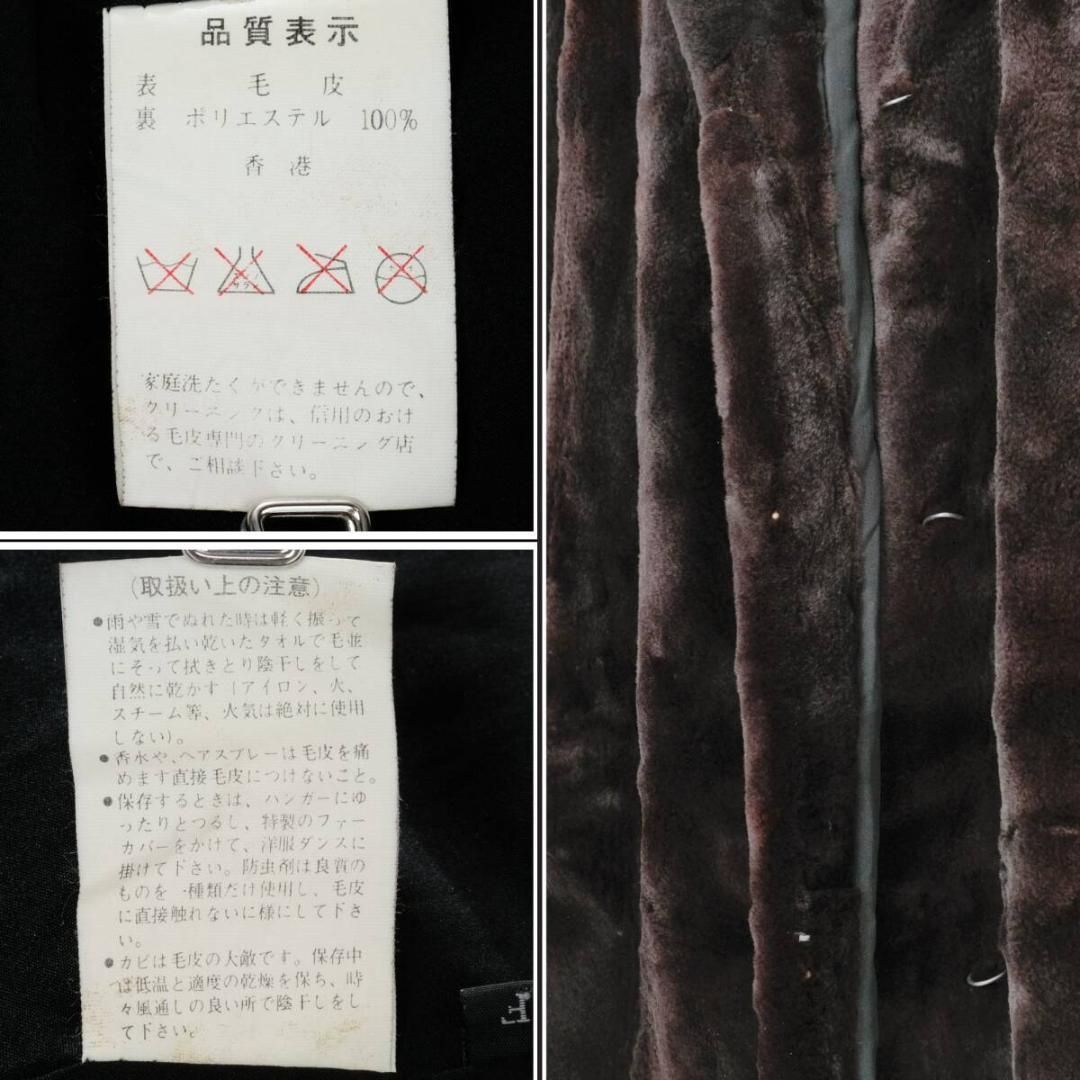 品質表示
表 毛皮
裏 ポリエステル 100%
香港
家庭洗たくができませんので、
クリーニングは、信用のおけ
る毛皮専門のクリーニング店
で、ご相談下さい。
(取扱い上の注意)
●雨や雪でぬれた時は軽く振って
湿気を払い乾いたタオルで毛並
にそって拭きとり陰干しをして
自然に乾かす(アイロン、火、
スチーム等、火気は絶対に使用
しない)。
●香水や、ヘアスプレーは毛皮を痛
めます直接毛皮につけないこと。
●保存するときは、ハンガーにゆ
ったりとつるし、特製のファー
カバーをかけて、洋服ダンスに
掛けて下さい。防虫剤は良質の
ものを一種類だけ使用し、毛皮
に直接触れないに様にして下さ
い。
●カビは毛皮の大敵です。保存中
は低温と適度の乾燥を保ち、時
々風通しの良い所で陰干しをし
て下さい。